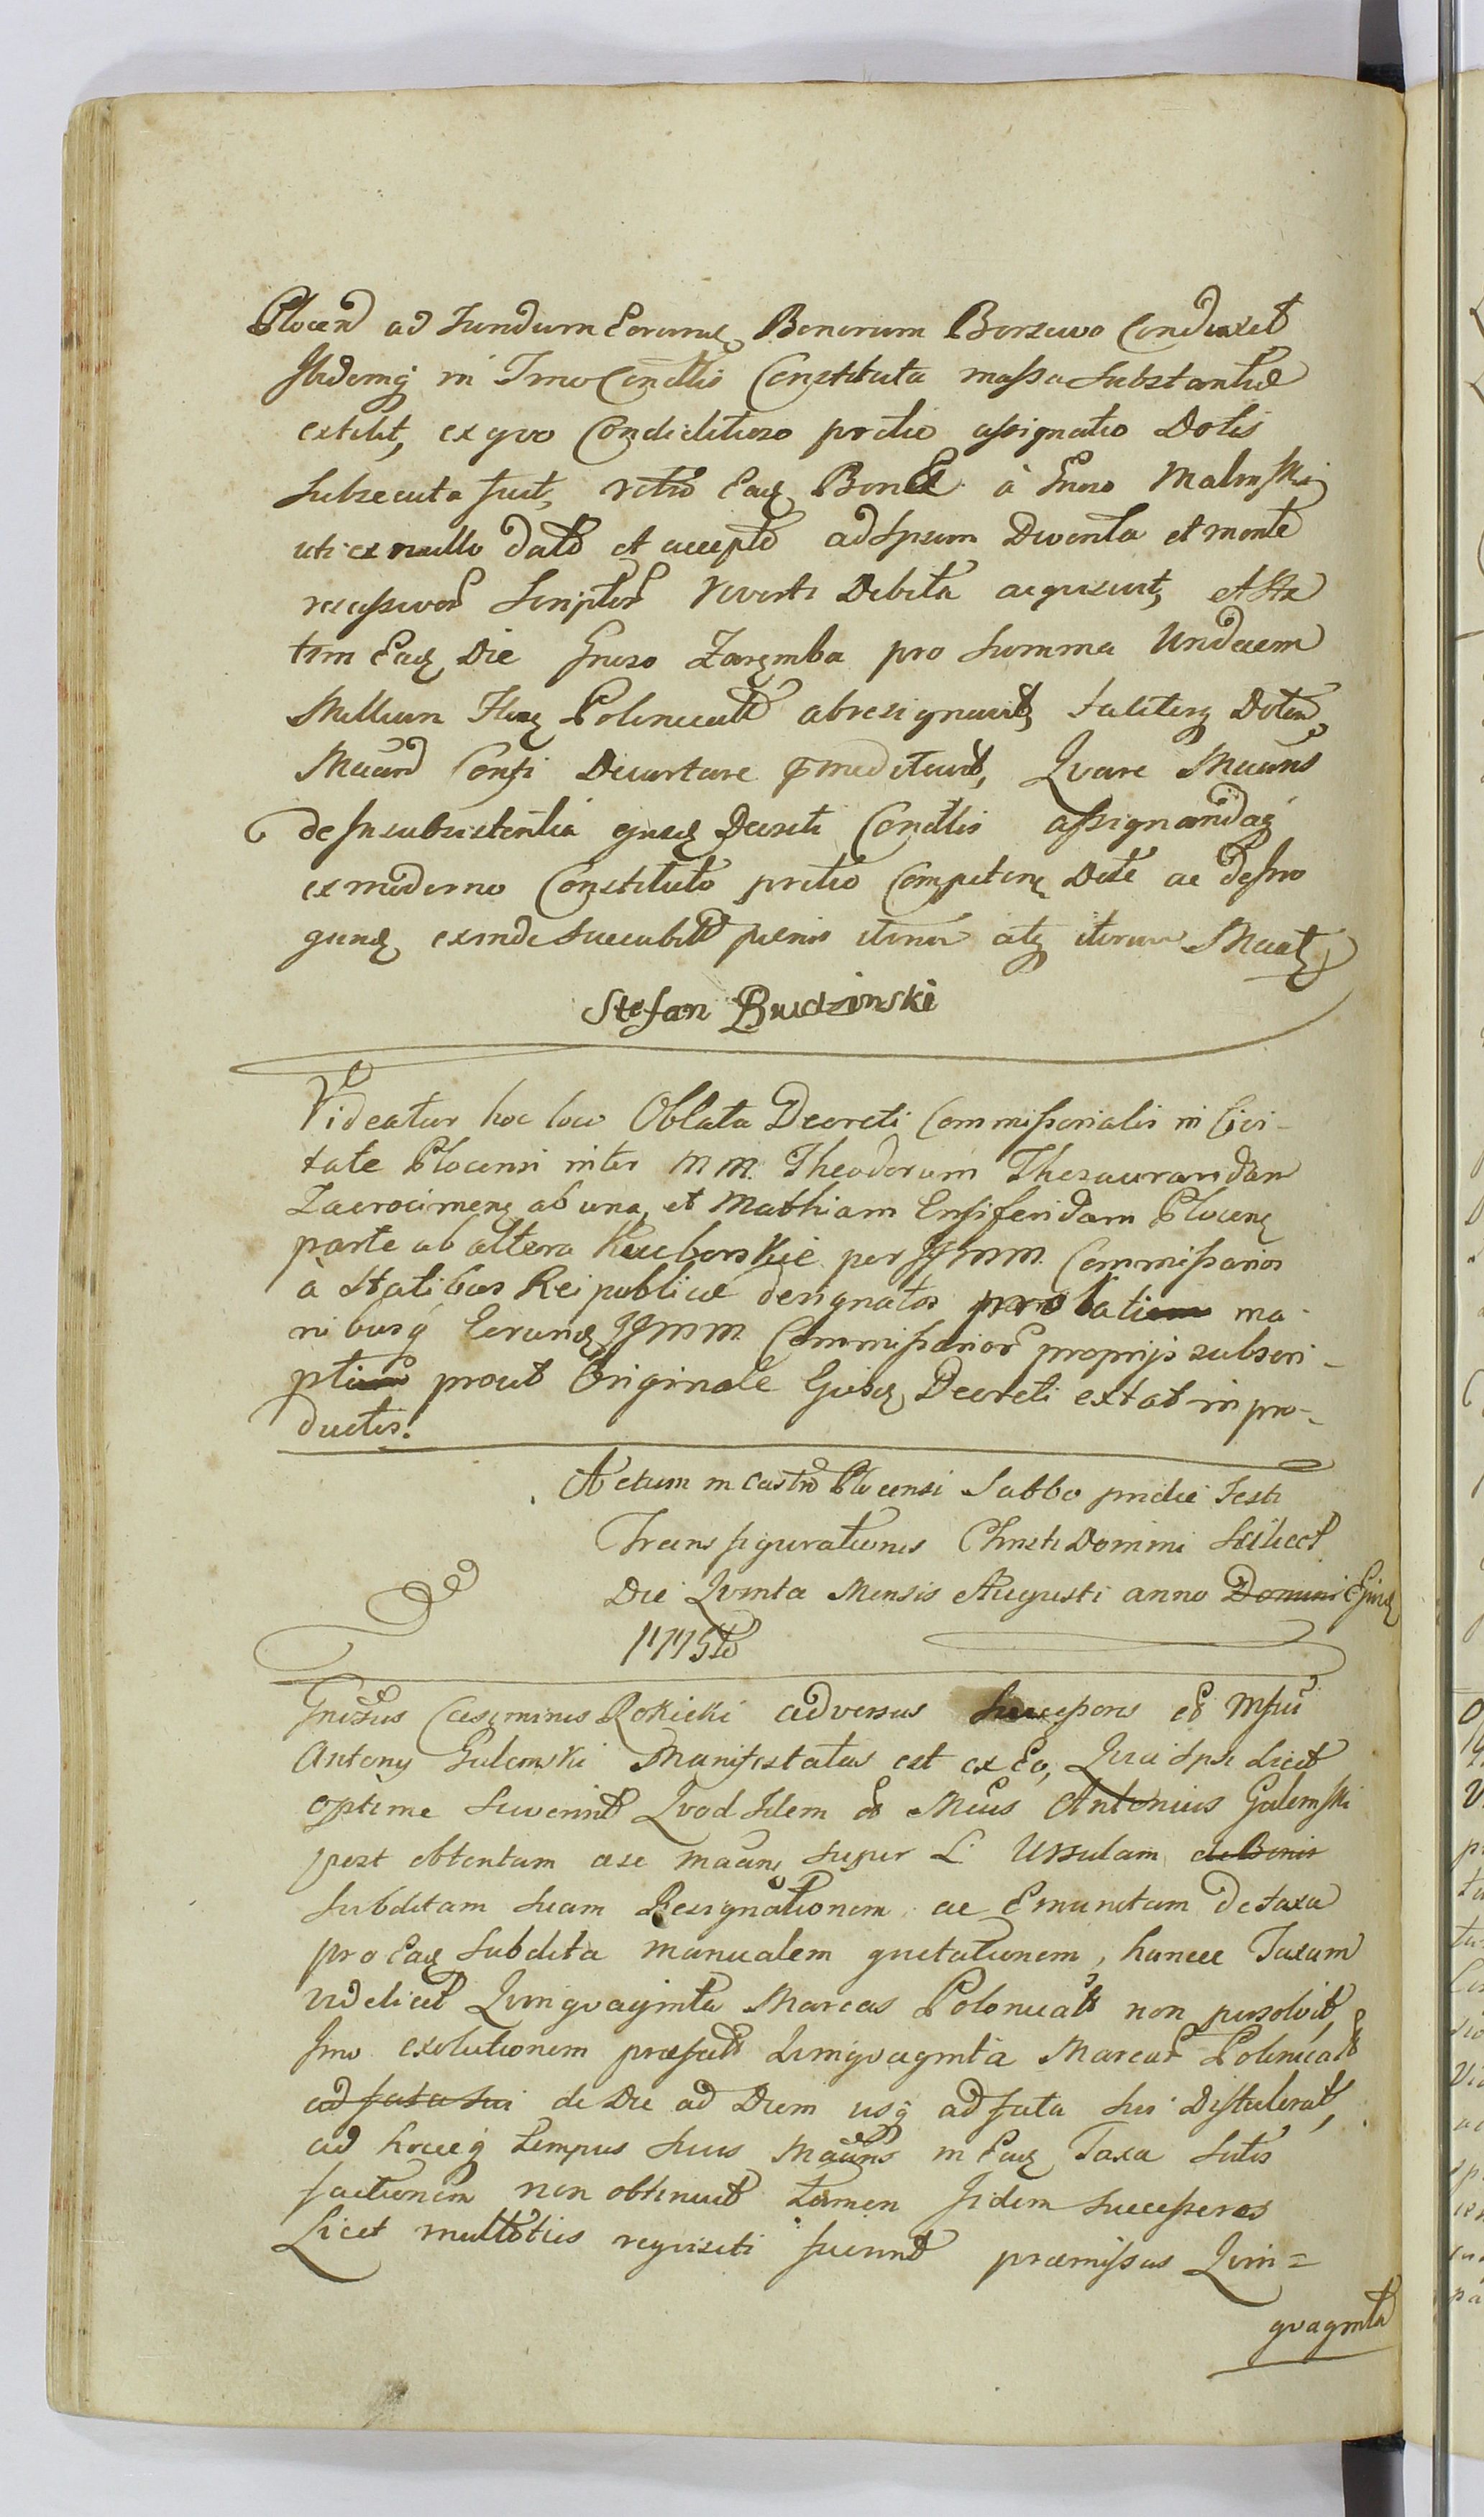 Plocen ad Fundum Eorundq Bonorum Borzewo Conduxit
Ibidemq in Trno Conditis Constituta massa Substantiæ
extitit, ex qvo Condictitioso pretio assignatio Dotis
Subsecuta fuit, retro Eadq Bona à Gnoso Malinski
uti ex nullo dato et accepto ad Ipsum Deventa et monte
recessivor Scriptor reverti Debita acqvisivit, et Sta
tim Eadq Die Gnoso Zaręmba pro Summa Undecem
Millium Flnq Polonicalt abresignavit, taliterq Dotem
Maand Consi Decurtare pmeditavit, Qvare Maans
de Insubsistentia ejusdq Decreti Condtis assignandaq
ex moderno Constituto pretio Competenq Dote ac de Ino
gendq exinde Succubitt pœnis iterum atq iterum Maatq
Stefan Budzinski
Videatur hoc loco Oblata Decreti Commissorialis in Civi-
tate Plocensi inter M M. Theodorum Thesauraridam
Zacrocimenq ab una, et Mathiam Ensiferidam Plocenq
parte ab altera Kuc borskie per JJ mm. Commissarios
à Statibus Rei publicæ designatos prolati ma-
nibusq Eorundq JJmm. Commissarior proprijs subscri-
pti prout Originale Ejusdq Decreti extat in pro-
ductis.
Actum in Castro Plocensi Sabbo pridie Festi
Transfigurationis Christi Domini Scilicet
Die Qvinta Mensis Augusti anno Domini Ejusdq
1775to
Gnosus Casimirus Rokicki adversus Successores olim
Antony Gulemski Manifestatus est ex Eo, Qvia Ipsi Licet
optime Sciverint Qvod Idem olim Antonius Galemski
post obtentam a se maanq super L. Ursulam de Bonis
Subditam Suam Resignationem ac Emanatam de taxa
pro Eadq Subdita manualem qvietationem, hancce Taxam
videlicet Qvinqvaginta Marcas Polonicalt non persolvit,
Imo exolutionem præfatt Qvinqvaginta Marcar Polonicalt
ad fata sui de Die ad Diem usq ad fata sui Distulerat,
ad hocceq tempus Suus Maans in Eadq Taxa Satis
factionem non obtinuit tamen Iidem Successores
Licet multoties reqvisiti fuerint præmissas Qvin=
qvaginta